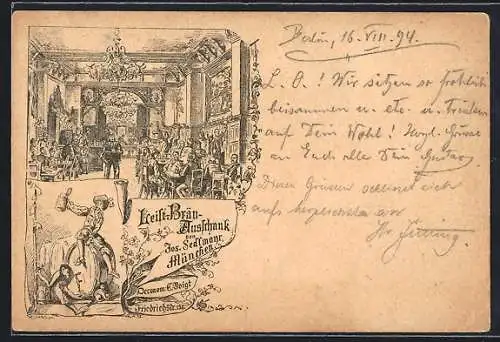 Leist-Bräu-
Ausschank
von
Jos. Sedlmayr
München
Oeconom: C. Voigt
Friedrichstr.
Berlin, 16. VIII. 94.
L. O.! Wir sitzen so fröhlich
beisammen u. etc. u. trinken
auf Dein Wohl! Herzl. Grüsse
an Euch alle Dein Gustav.
Diesen Grüssen schliesst sich
aufs herzlichste an